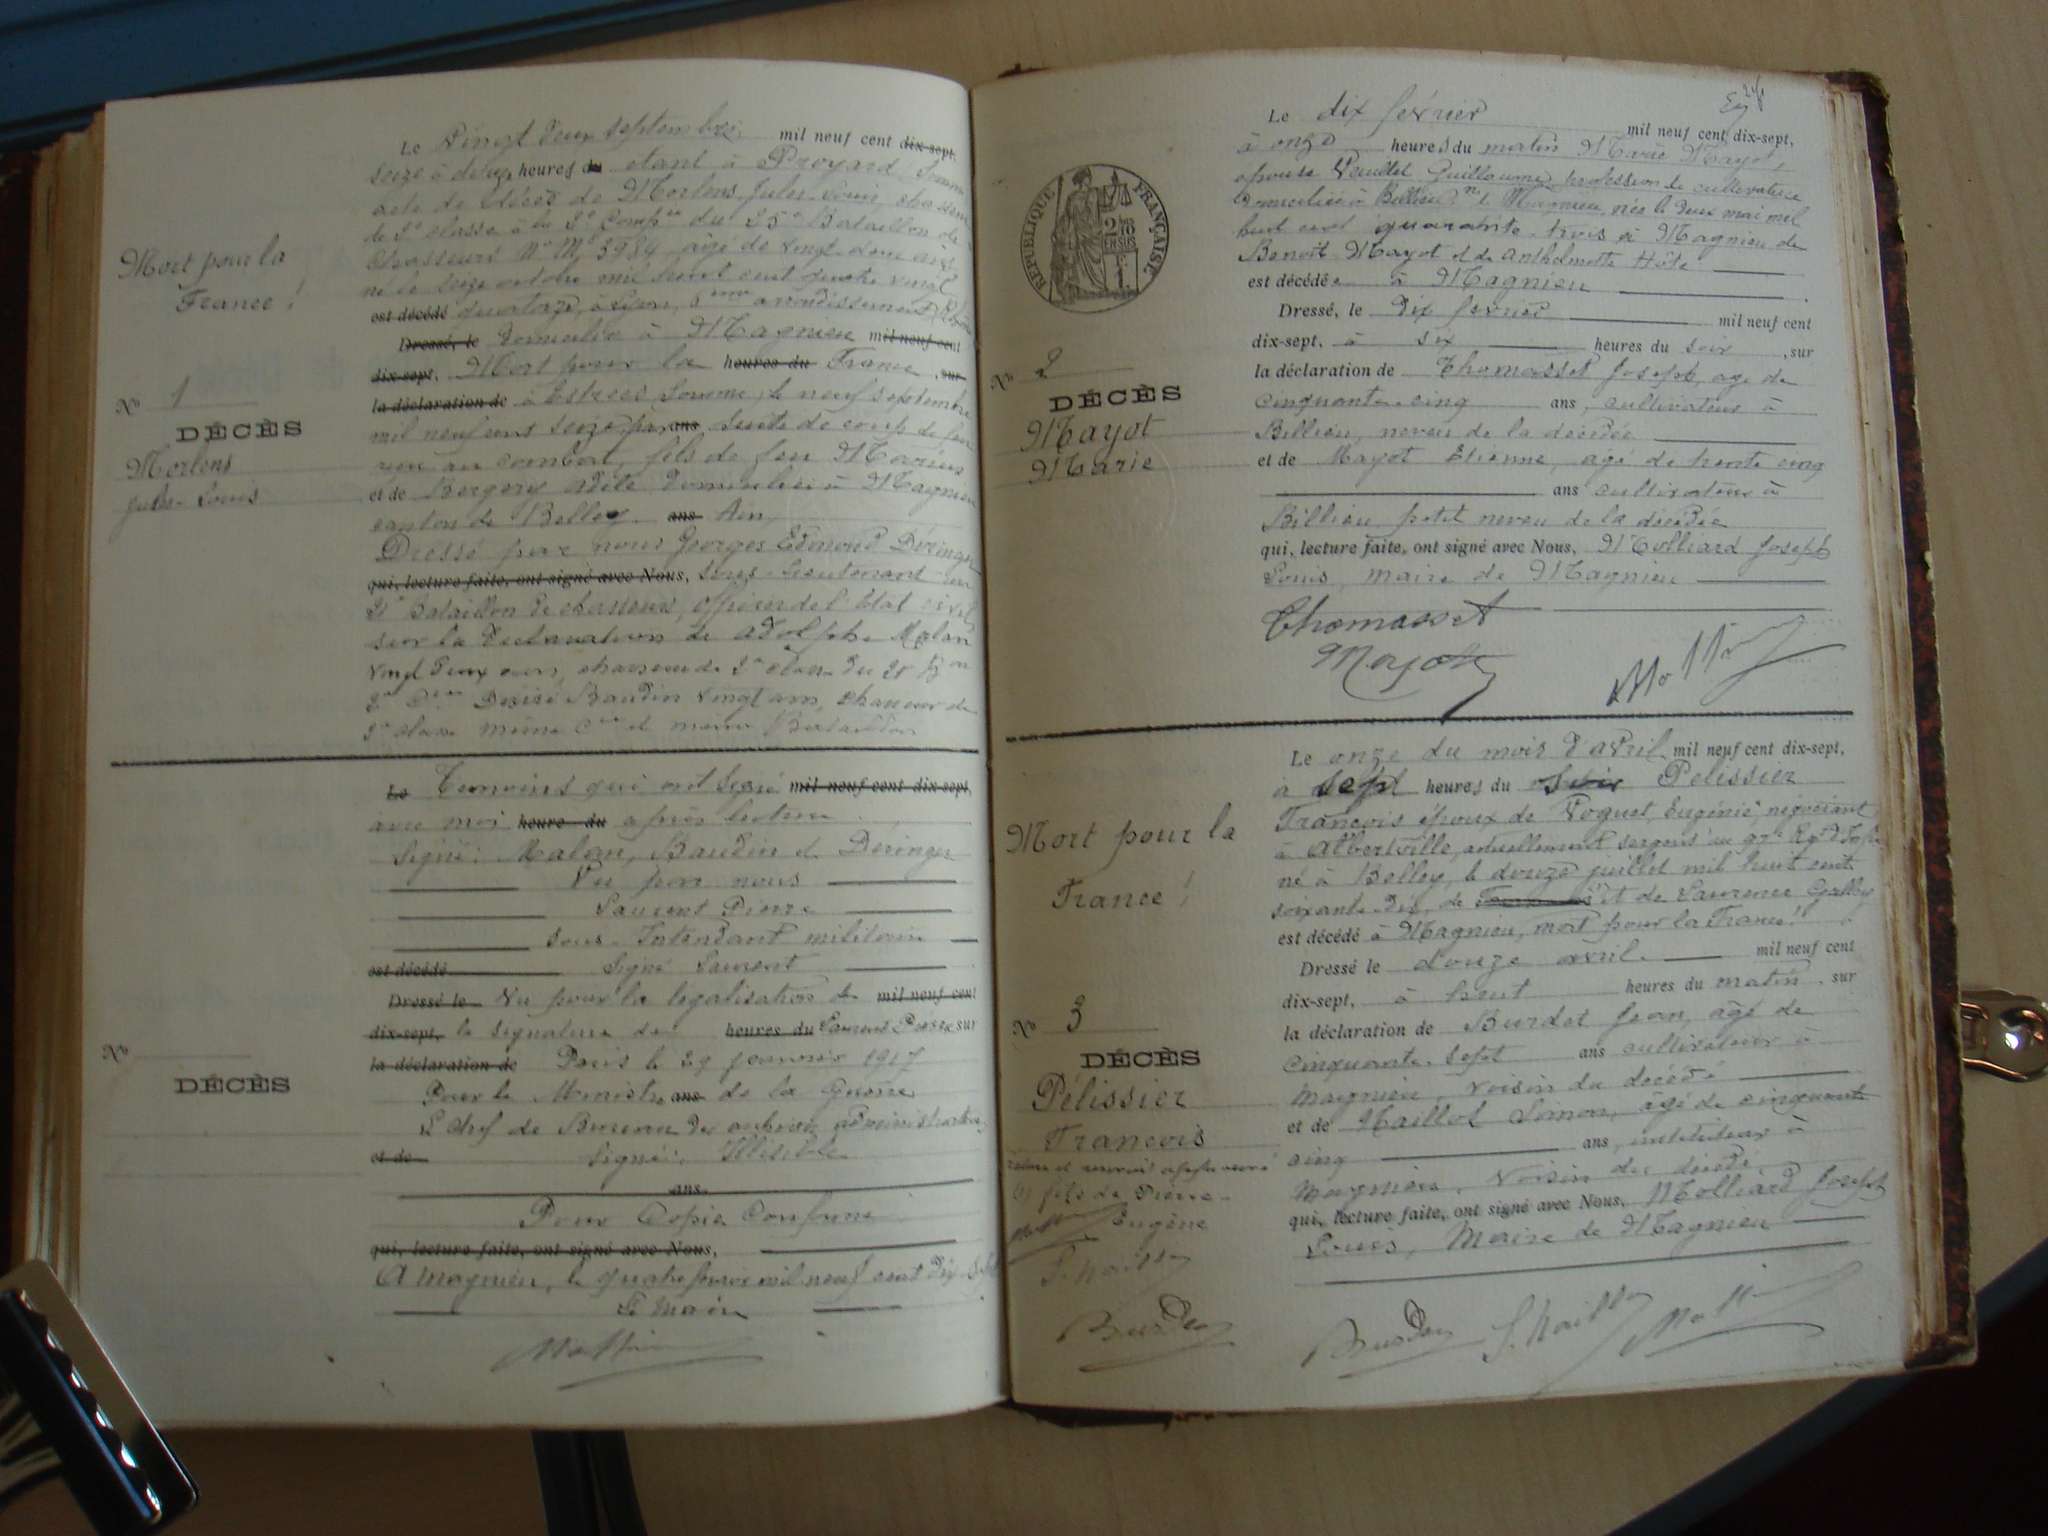 Le Vingt deux septembre mil neuf cent dix-sept,
seize à deux heures du étant à Proyard, Somme
acte de décès de Mortens Jules Louis, chasseur
de 2e classe à la 2e Compie du 25e Bataillon de
chasseurs No Mle 5984, âgé de vingt deux ans
né le seize octobre mil huit cent quatre vingt
est décédé quatorze, à Lyon, arrondissement
Dressé, le domicilié à Magnieu mil neuf cent
dix-sept, Mort pour la heures du France, sur
la déclaration de à Estrées Somme, le neuf septembre
mil neuf cent seize par ans suite de coup de feu
reçu au combat, fils de feu Marius
et de Bergery Adèle domiciliée à Magnieu
canton de Belley ans Ain,
Dressé par nous Georges Edmond Déringer
qui, lecture faite, ont signé avec Nous, sous-lieutenant au
Bataillon de chasseurs, officier de l'état civil,
sur la déclaration de Adolphe Malan
vingt deux ans, chasseur de 2e classe du 25 Bon
2e Cie Désiré Baudin vingt ans, chasseur de
2e classe même Cie et même Bataillon
Mort pour la
France !
No 1
DÉCÈS
Mortens
Jules-Louis
Le Témoins qui ont signé mil neuf cent dix-sept,
avec moi heure du après lecture
Signé: Malan, Baudin et Déringer
Vu par nous
Laurent Pierre
sous-Intendant militaire
est décédé Signé Laurent
Dressé le Vu pour la légalisation de mil neuf cent
dix-sept, la signature de heures du Laurent Pierre sur
la déclaration de Paris le 29 janvier 1917
Pour le Ministre ans de la Guerre
L Chef de Bureau des archives administratives
et de Signé: Illisible
ans
Pour Copie Conforme
qui, lecture faite, ont signé avec Nous,
A Magnieu, le quatre février mil neuf cent dix-sept
Le Maire
No
DÉCÈS
Le dix février mil neuf cent dix-sept,
à onze heures du matin Marie Mayot,
épouse Peuillet Guillaume, profession de cultivatrice
domiciliée à Billieu Magnieu, née le deux mai mil
huit cent quarante-trois à Magnieu de
Benoît Mayot et de Anthelmette Hôte
est décédée à Magnieu
Dressé, le Dix février mil neuf cent
dix-sept, à six heures du soir, sur
la déclaration de Thomasset Joseph, agé de
cinquante-cinq ans, cultivateur à
Billieu, neveu de la décédée
et de Mayot Etienne, agé de trente cinq
ans cultivateur à
Billieu petit neveu de la décédée
qui, lecture faite, ont signé avec Nous, Molliard Joseph
Louis, maire de Magnieu
Thomasset
Mayot
RÉPUBLIQUE FRANÇAISE
2/10
EN SUS
No 2
DÉCÈS
Mayot
Marie
Le onze du mois d'avril mil neuf cent dix-sept,
à sept heures du soir Pélissier
François époux de Voguet, Eugénie, négociant
à Albertville, actuellement sergent au 97e Rgt d'Infie
né à Belley, le douze juillet mil huit cent
soixante-dix, de et de Laurence Gallay
est décédé à Magnieu, mort pour la France !
Dressé le douze avril mil neuf cent
dix-sept, à huit heures du matin, sur
la déclaration de Burdet Jean, âgé de
cinquante-sept ans cultivateur à
Magnieu, voisin du décédé
et de Maillot Simon, âgé de cinquante
cinq ans, instituteur à
Magnieu, voisin du décédé
qui, lecture faite, ont signé avec Nous, Molliard Joseph
Louis, Maire de Magnieu
Mort pour la
France !
No 3
DÉCÈS
Pélissier
François
(1) fils de Pierre-
Eugène